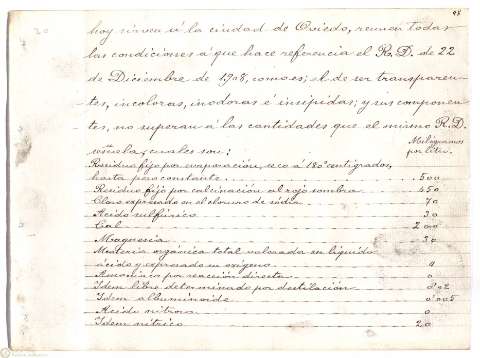 hoy sirven á la ciudad de Oviedo, reunen todas
las condiciones á que hace referencia el R. D. de 22
de Diciembre de 1908, como es; el de ser transparen-
tes, incoloras, inodoras é insipidas; y sus componen-
tes, no superan á las cantidades que el mismo R. D.
señala, cuales son:
Miligramos
por litro.
Residuo fijo por evaporación, seco á 180° centígrados,
hasta peso constante. 500
Residuo fijo por calcinación al rojo sombra 450
Cloro expresado en el cloruro de sodio 70
Acido sulfúrico 30
Cal 200
Magnesia 30
Materia orgánica total valorada en líquido
ácido y expresada en oxígeno
Amoniaco por reacción directa 0
Idem libre determinado por destilación 0'02
Idem albuminoide 0'005
Acido nitroso 0
Idem nítrico 20